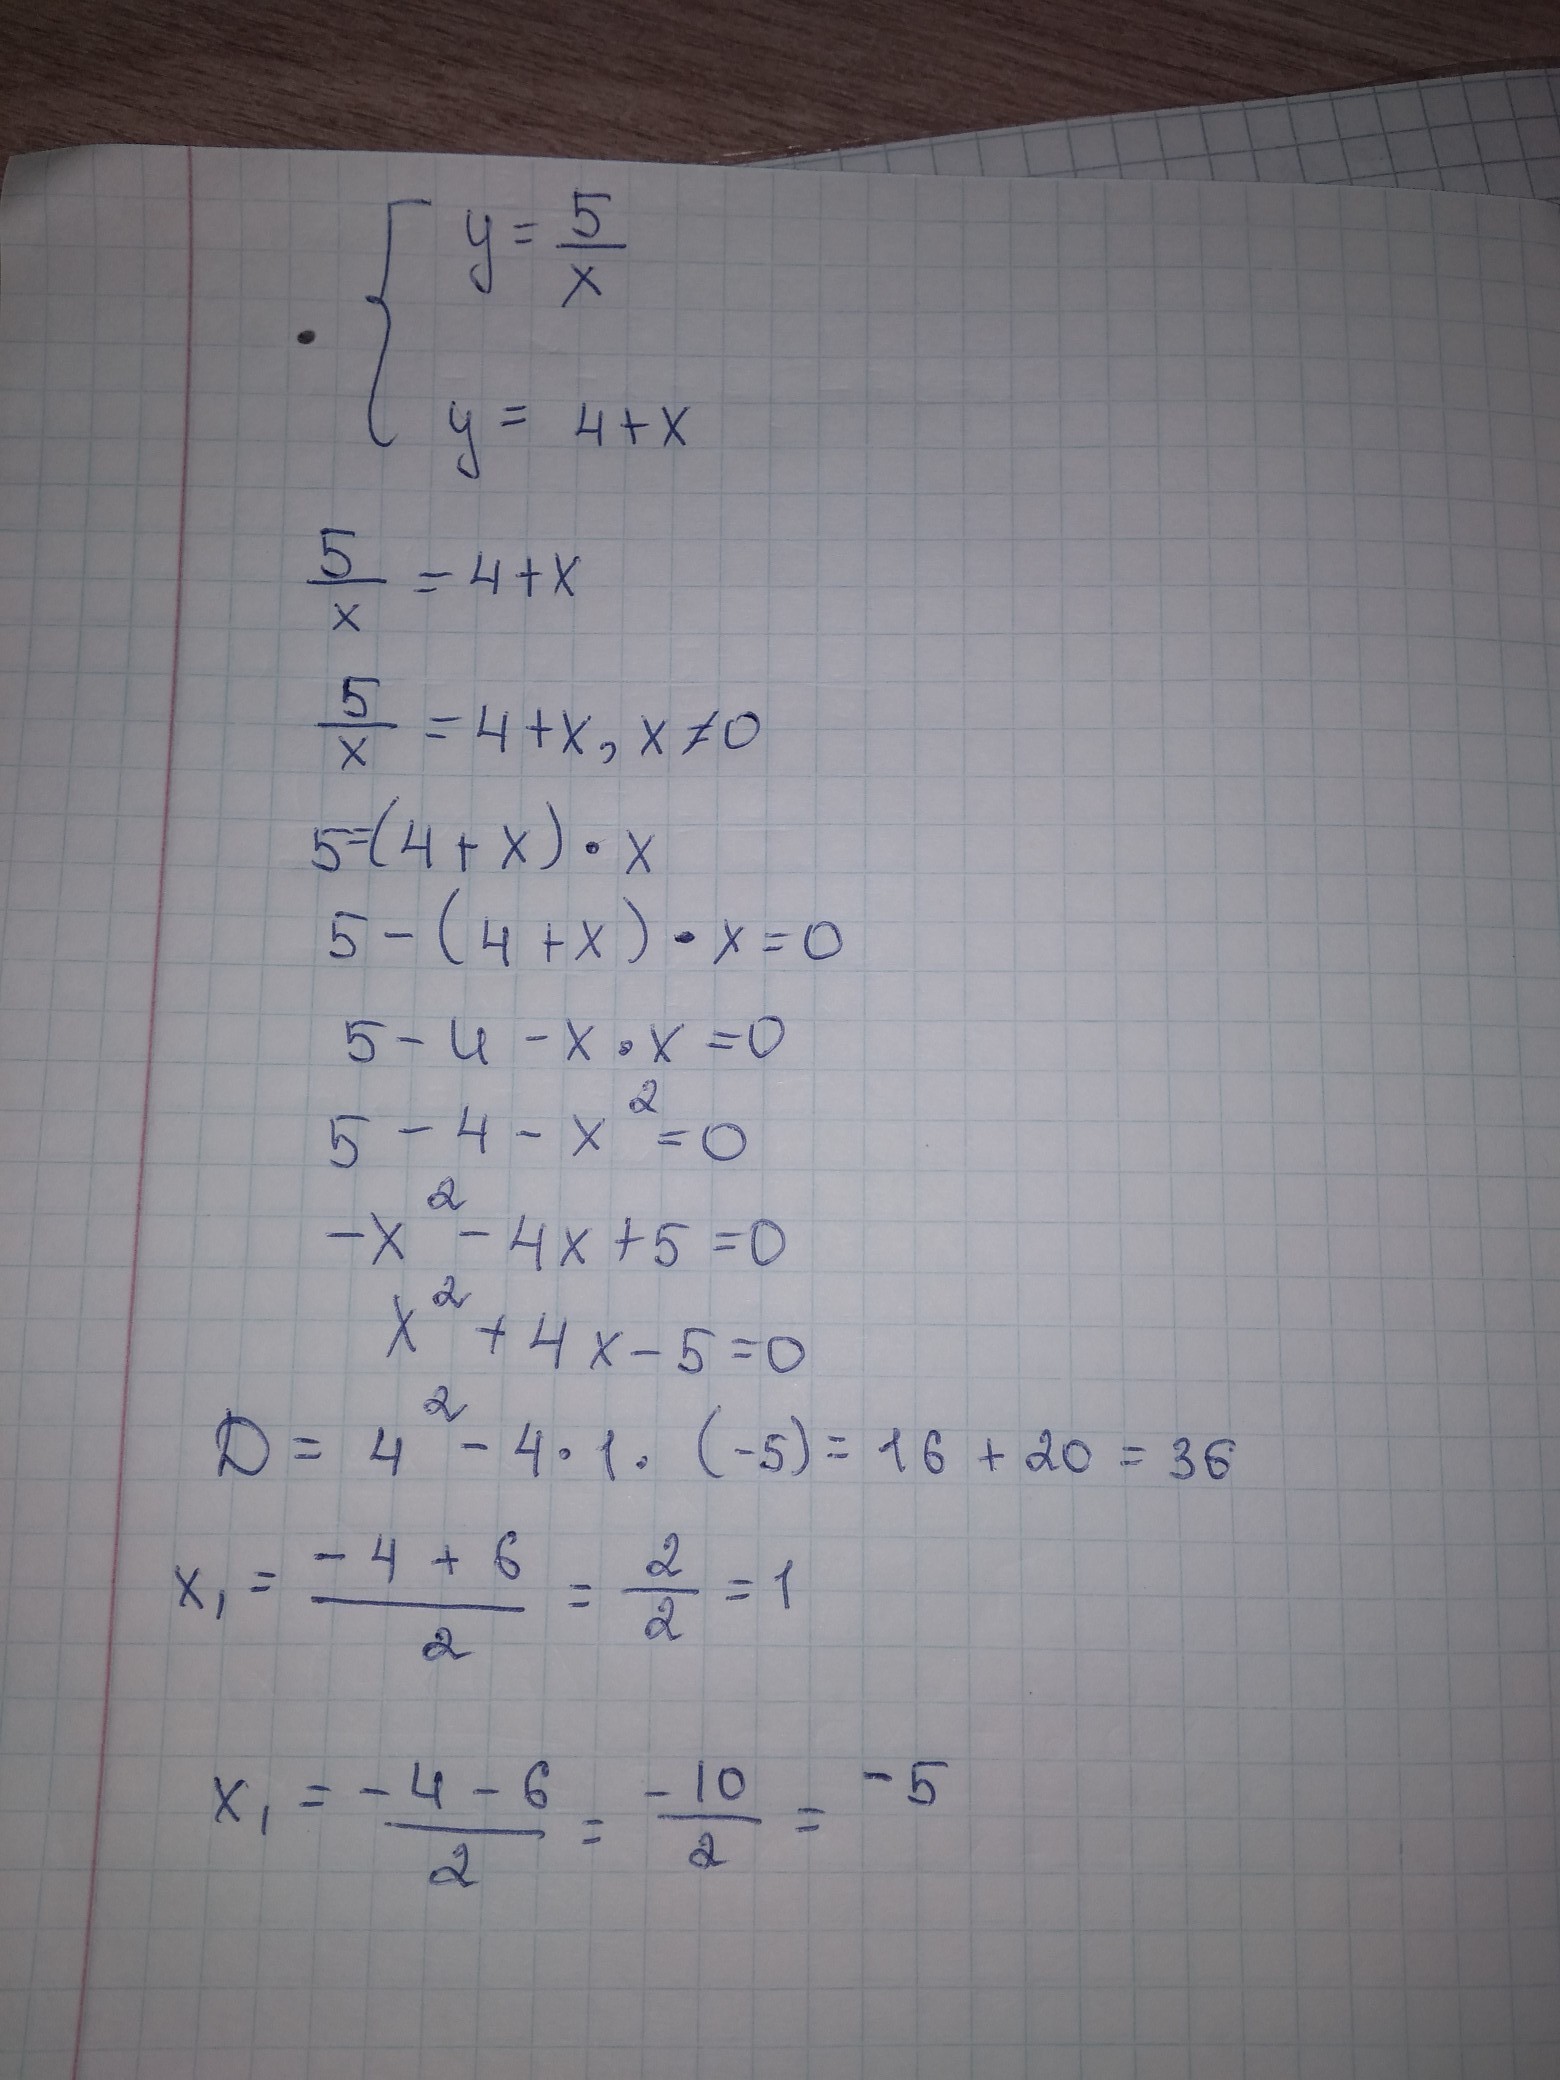 { y = 5/x
y = 4+x
5/x = 4+x
5/x = 4+x, x≠0
5=(4+x)•x
5-(4+x)•x=0
5-4-x•x=0
5-4-x²=0
-x²-4x+5=0
x²+4x-5=0
D = 4²-4•1•(-5)=16+20=36
x₁ = (-4+6)/2 = 2/2 = 1
x₁ = (-4-6)/2 = -10/2 = -5